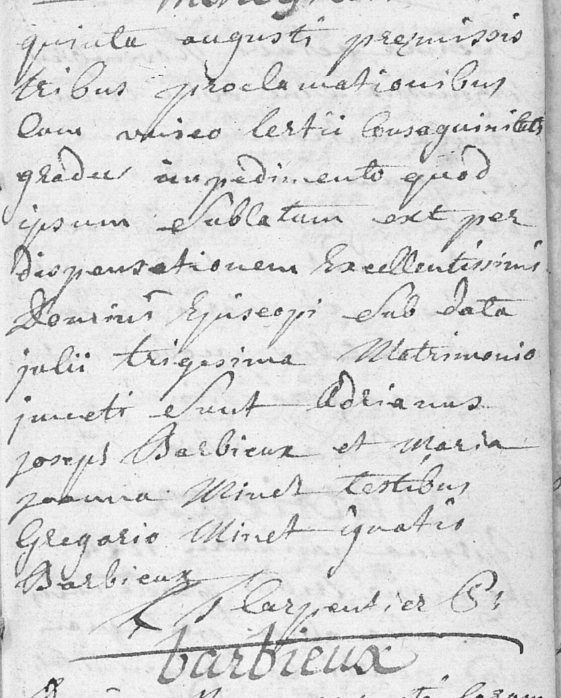 quinta augusti premissis
tribus proclamationibus
Cum unico tertii Consaguinitatis
gradus impedimento quod
ipsum Sublatum ext per
dispensationem Excellentissimi
Domini Episcopi Sub data
julii trigesima Matrimonio
juncti Sunt Adrianus
joseph Barbieux et Maria
joanna Minet testibus
Gregorio Minet ignatio
Barbieux
Carpentier
barbieux